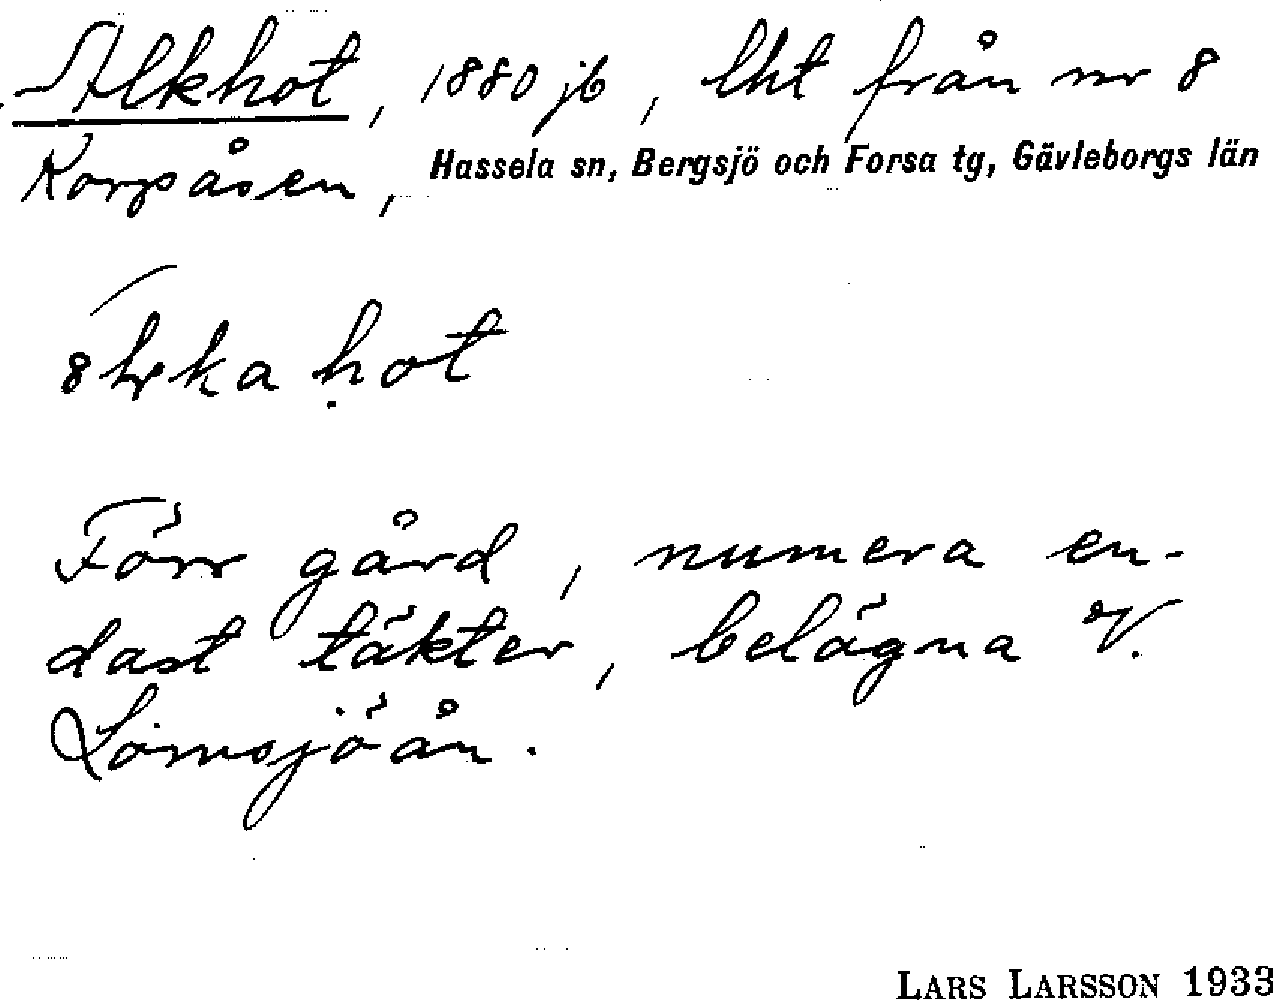 Alkhot, 1880 jb, lht från nr 8
Korpåsen, Hassela sn, Bergsjö och Forsa tg, Gävleborgs län
hot
Förr gård, numera en-
dast täkter, belägna V.
Lomsjöån.
LARS LARSSON 1933